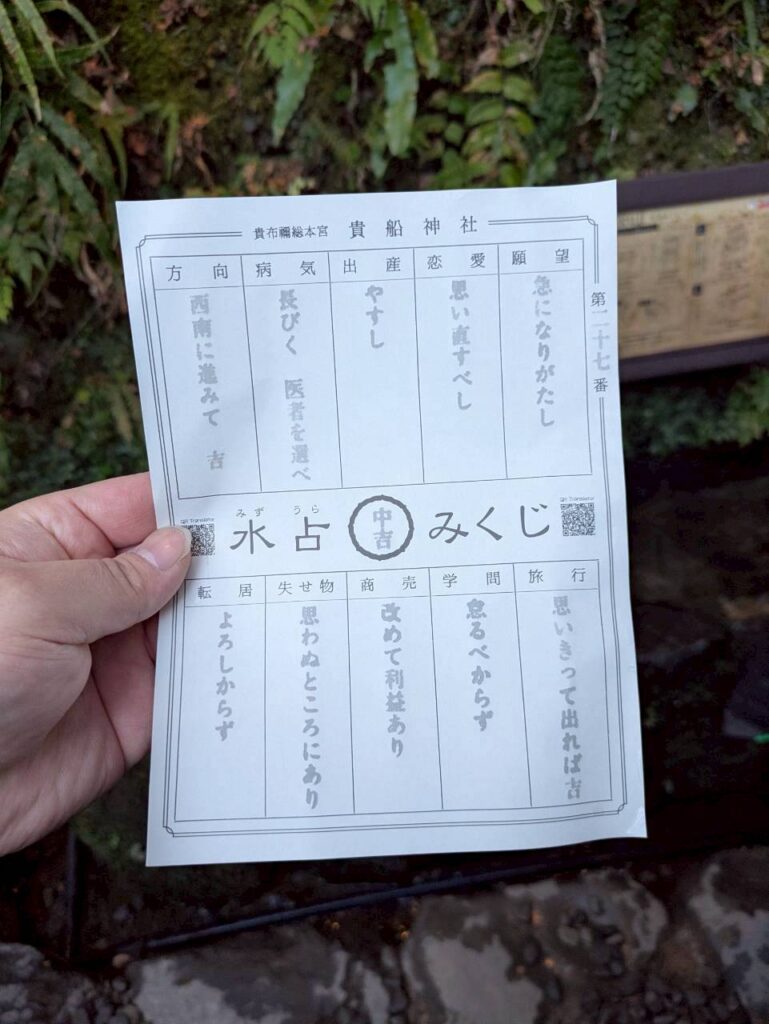 貴布禰総本宮 貴船神社
第二十七番
願望
急になりがたし
恋愛
思い直すべし
出産
やすし
病気
長びく 医者を選べ
方向
西南に進みて 吉
みず うら
水占 中吉 みくじ
QR Translator
QR Translator
旅行
思いきって出れば吉
学問
怠るべからず
商売
改めて利益あり
失せ物
思わぬところにあり
転居
よろしからず